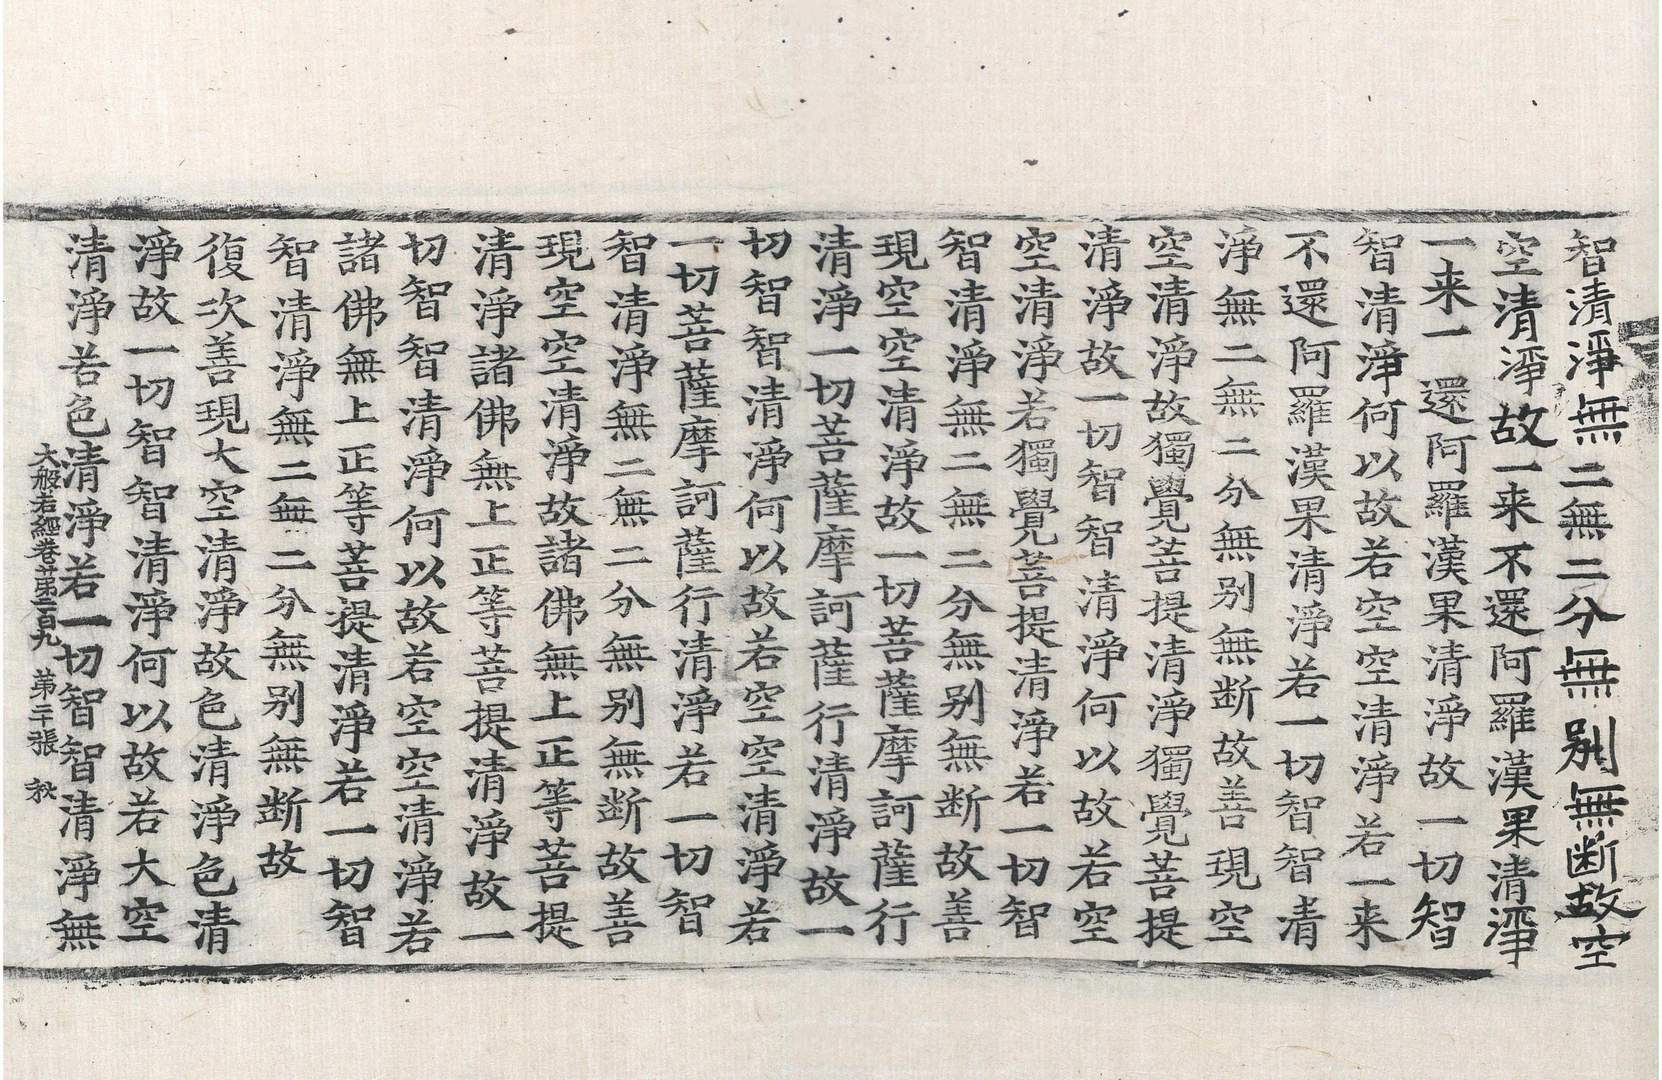 智清淨無二無二分無別無断故空
空清淨故一来不還阿羅漢果清淨
一来一還阿羅漢果清淨故一切智
智清淨何以故若空空清淨若一来
不還阿羅漢果清淨若一切智智清
淨無二無二分無别無断故善現空
空清淨故獨覺菩提清淨獨覺菩提
清淨故一切智智清淨何以故若空
空清淨若獨覺菩提清淨若一切智
智清淨無二無二分無别無断故善
現空空清淨故一切菩薩摩訶薩行
清淨一切菩薩摩訶薩行清淨故一
切智智清淨何以故若空空清淨若
一切菩薩摩訶薩行清淨若一切智
智清淨無二無二分無别無断故善
現空空清淨故諸佛無上正等菩提
清淨諸佛無上正等菩提清淨故一
切智智清淨何以故若空空清淨若
諸佛無上正等菩提清淨若一切智
智清淨無二無二分無别無断故
復次善現大空清淨故色清淨色清
淨故一切智智清淨何以故若大空
清淨若色清淨若一切智智清淨無
大般若經卷第二百九 第二張 秋